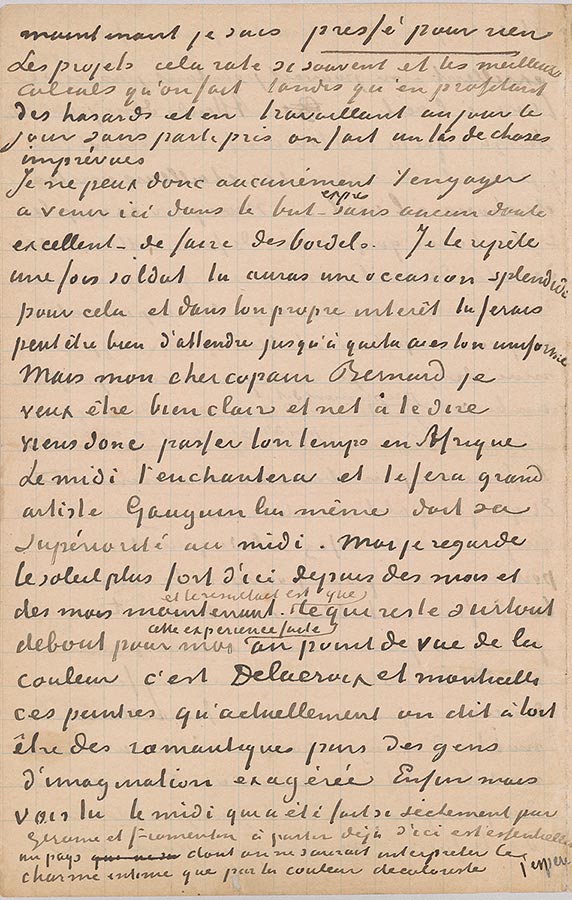 maintenant je suis pressé pour rien
Les projets cela rate si souvent et les meilleurs
calculs qu'on fait tandis qu'en profitant
des hasards et en travaillant au jour le
jour sans parti pris on fait un tas de choses
imprévues
Je ne peux donc aucunément t'engager
a venir ici dans le but exprès - sans aucun doute
excellent - de faire des bordels. Je te repète
une fois soldat tu auras une occasion splendide
pour cela et dans ton propre interêt tu ferais
peut être bien d'attendre jusqu'à que tu aies ton uniforme
Mais mon cher copain Bernard je
veux être bien clair et net à te dire
viens donc passer ton temps en Afrique
Le midi t'enchantera et te fera grand
artiste Gauguin lui même doit sa
supériorité au midi. Moi je regarde
le soleil plus fort d'ici depuis des mois et
des mois maintenant. et le resultat est que
Ce qui reste surtout
cette experience faite
debout pour moi au point de vue de la
couleur c'est Delacroix et monticelli
ces peintres qu'actuellement on dit à tort
être des romantiques purs des gens
d'imagination exagérée Enfin mais
vois tu le midi qui a été fait si sèchement par
Gerome et fromentin à partir déjà d'ici est essentiellement
un pays dont on ne saurait interpréter le
charme intime que par la couleur du coloriste
J'espère